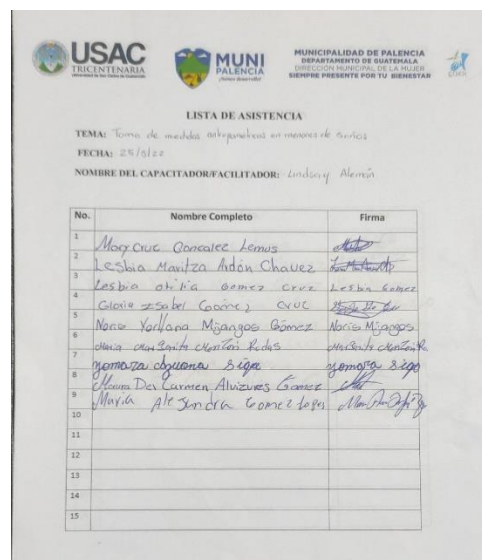 USAC
TRICENTENARIA
Universidad de San Carlos de Guatemala
MUNI
PALENCIA
MUNICIPALIDAD DE PALENCIA
DEPARTAMENTO DE GUATEMALA
DIRECCIÓN MUNICIPAL DE LA MUJER
SIEMPRE PRESENTE POR TU BIENESTAR
LISTA DE ASISTENCIA
TEMA: Toma de medidas antropometricas en menores de 5 años
FECHA:
NOMBRE DEL CAPACITADOR/FACILITADOR: Lindsay Alemán
No. Nombre Completo Firma
1 Mary Cruz Gonzalez Lemus
2 Lesbia Maritza Ardón Chavez
3 Lesbia otilia Gomez Cruz Lesbia Gomez
4 Gloria Isabel Gómez Cruz
5 Noris Yorllana Mijangos Gómez Noris Mijangos
6 Maria Margarita Monzón Rodas
7 yomara
8 Del Carmen Alvizures Gomez
9 Maria Alejandra Gomez
10
11
12
13
14
15